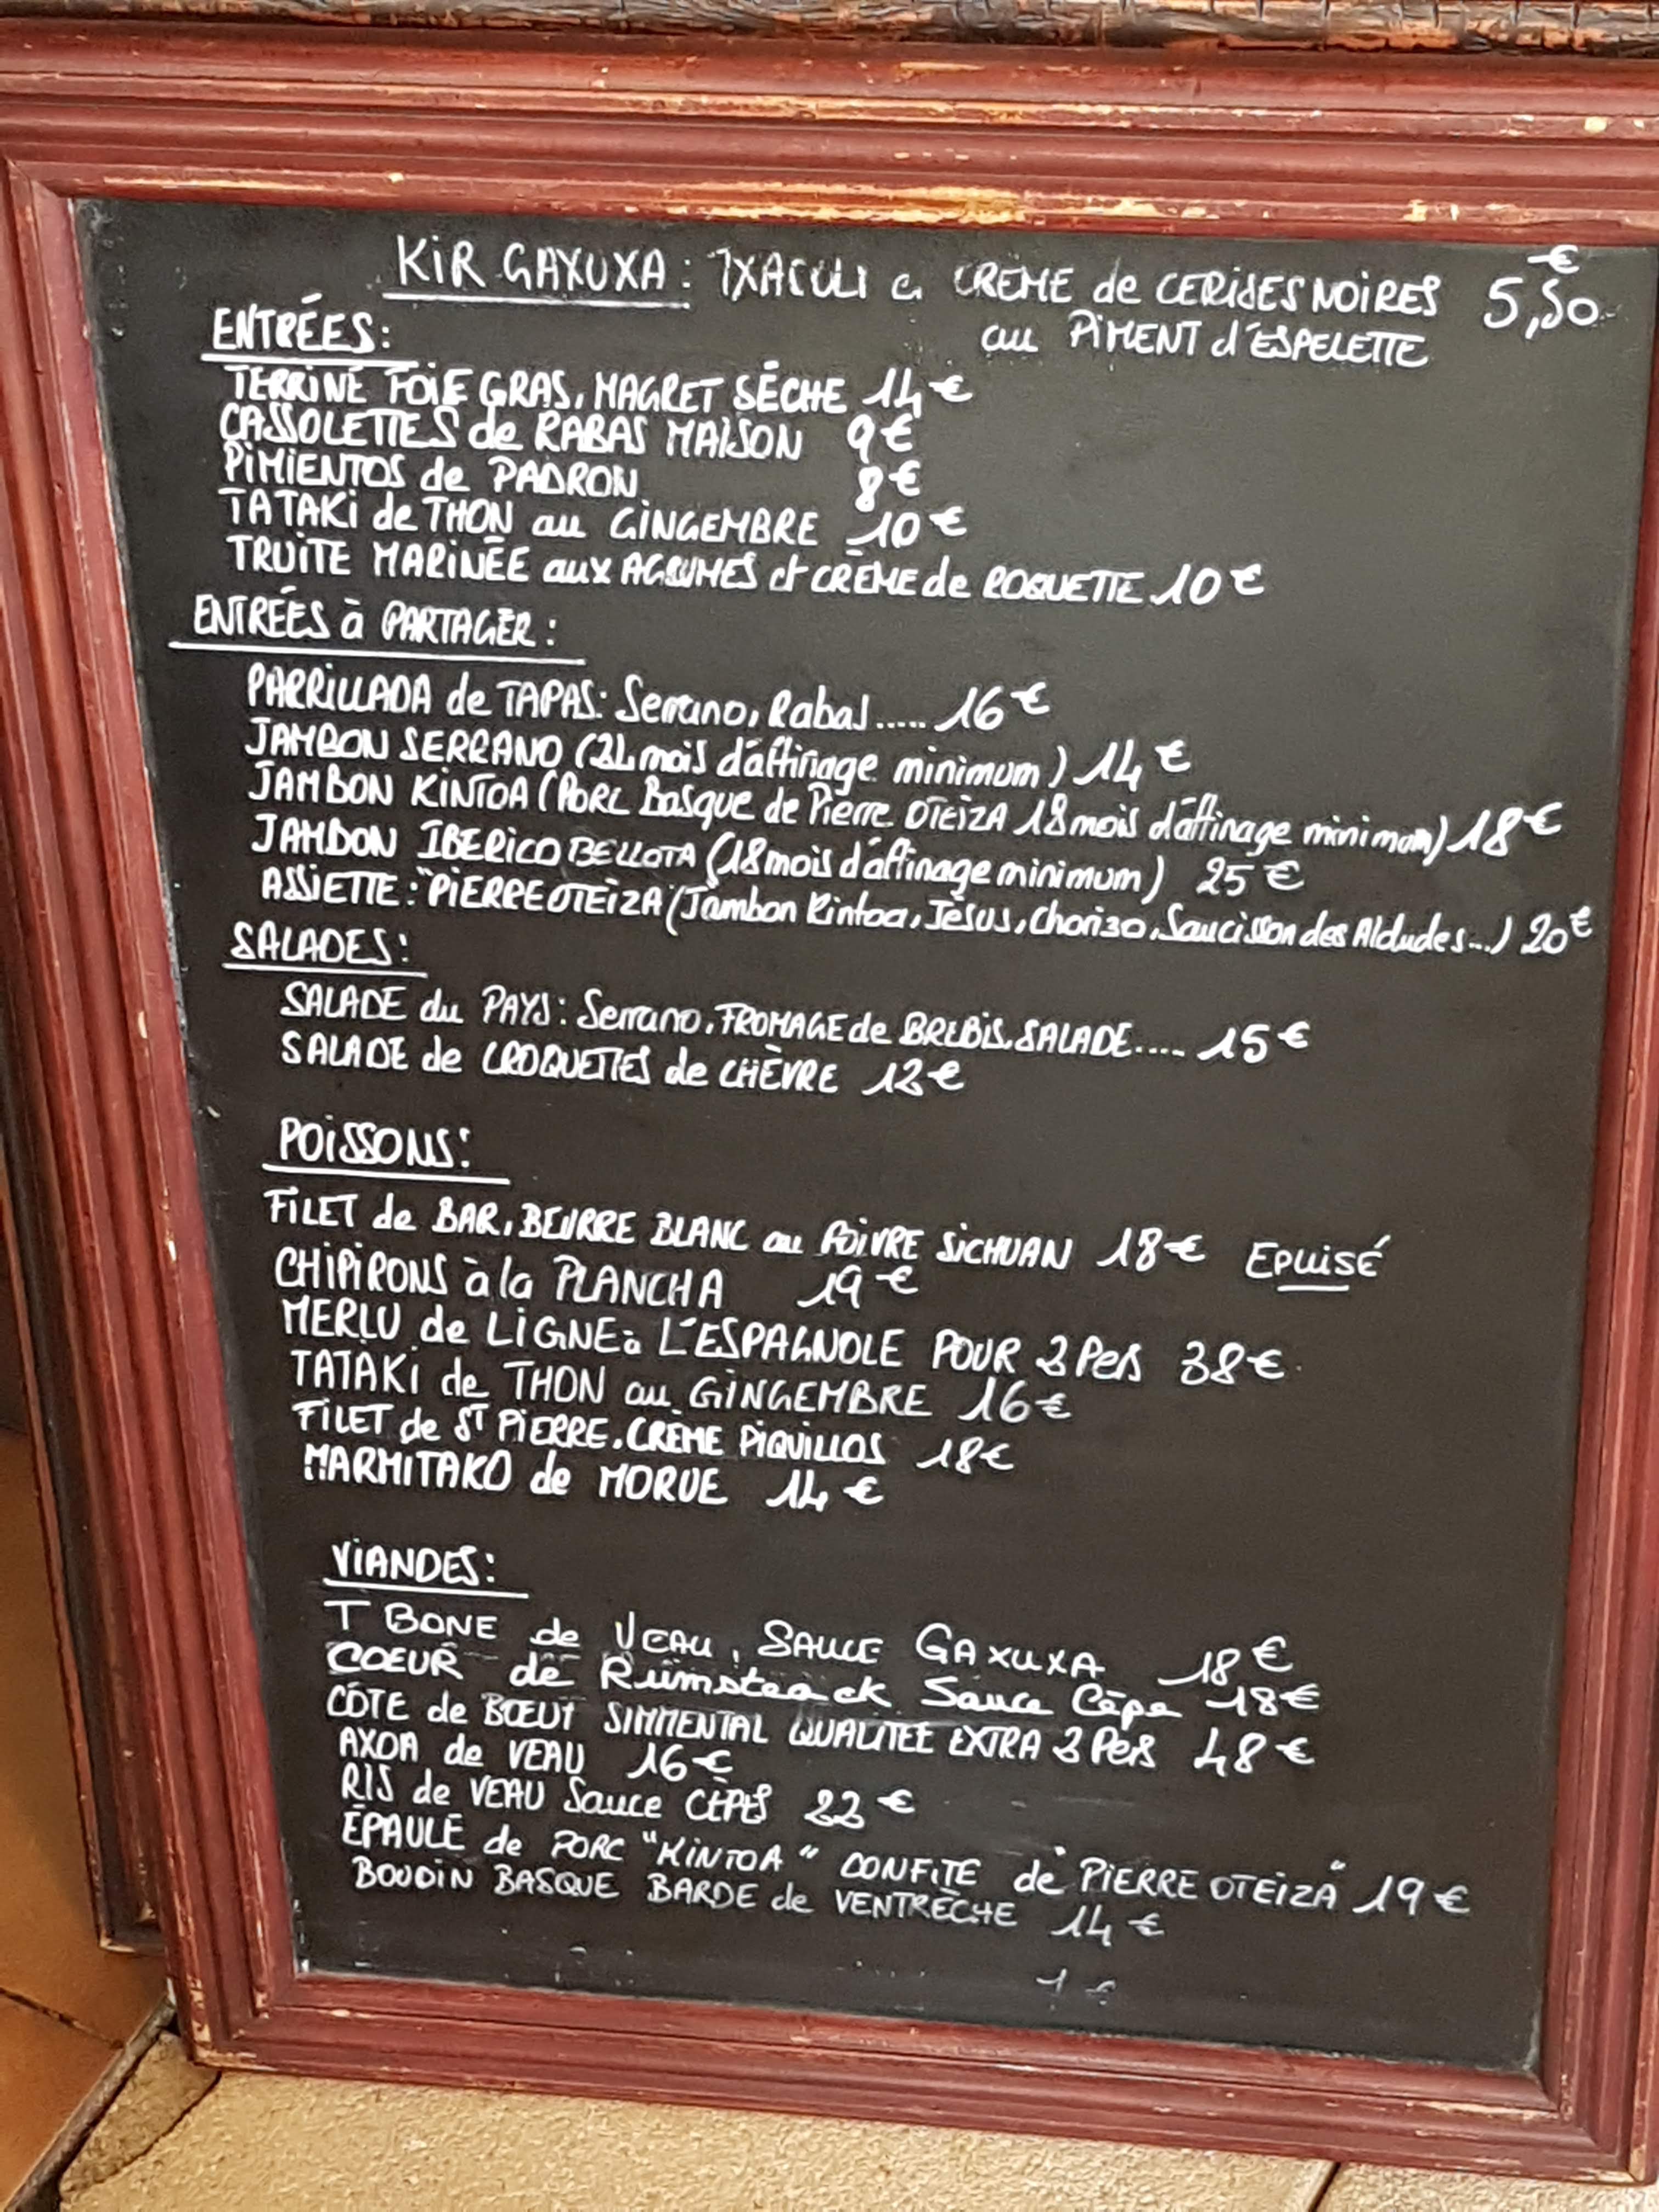 KiR GAXUXA : TXACOLI CREME de CERISES NOIRES 5,50 €
au PiMENT d'ESPELETTE
ENTRÉES :
TERRINE FOIE GRAS, MAGRET SÉCHE 14 €
CASSOLETTES de RABAS MAISON 9 €
PiMiENTOS de PADRON 8 €
TATAKi de THON au GiNGEMBRE 10 €
TRUiTE MARiNÉE aux AGRUMES et CRÈME de ROQUETTE 10 €
ENTRÉES à PARTAGER :
PARRiLLADA de TAPAS: Serrano, Rabas ..... 16 €
JAMBON SERRANO (24 mois d'affinage minimum) 14 €
JAMBON KiNTOA (PORC Basque de Pierre OTEiZA 18 mois d'affinage minimum) 18 €
JAMBON IBERiCO BELLOTA (18 mois d'affinage minimum) 25 €
ASSiETTE : "PiERRE OTEiZA" (Jambon Kintoa, Jèsus, Chorizo, Saucisson des Aldudes...) 20 €
SALADES :
SALADE du PAYS : Serrano, FROMAGE de BREBiS, SALADE.... 15 €
SALADE de CROQUETTES de CHÈVRE 12 €
POiSSONS :
FiLET de BAR, BEURRE BLANC au POiVRE SiCHUAN 18 € EPuiSÉ
CHiPiRONS à la PLANCHA 19 €
MERLU de LiGNE à L'ESPAGNOLE POUR 2 Pers 38 €
TATAKi de THON au GiNGEMBRE 16 €
FiLET de ST PiERRE, CRÈME PiQUiLLOS 18 €
MARMiTAKO de MORUE 14 €
ViANDES :
T BONE de VEAU, SAUCE GAXUXA 18 €
COEUR de Rumsteack Sauce Cèpe 18 €
CÔTE de BŒUF SIMMENTAL QUALITEE EXTRA 2 Pers 48 €
AXOA de VEAU 16 €
RIS de VEAU Sauce CÈPES 22 €
ÉPAULE de PORC "KiNTOA" CONFiTE de "PiERRE OTEiZA" 19 €
BOUDiN BASQUE BARDE de VENTRÈCHE 14 €